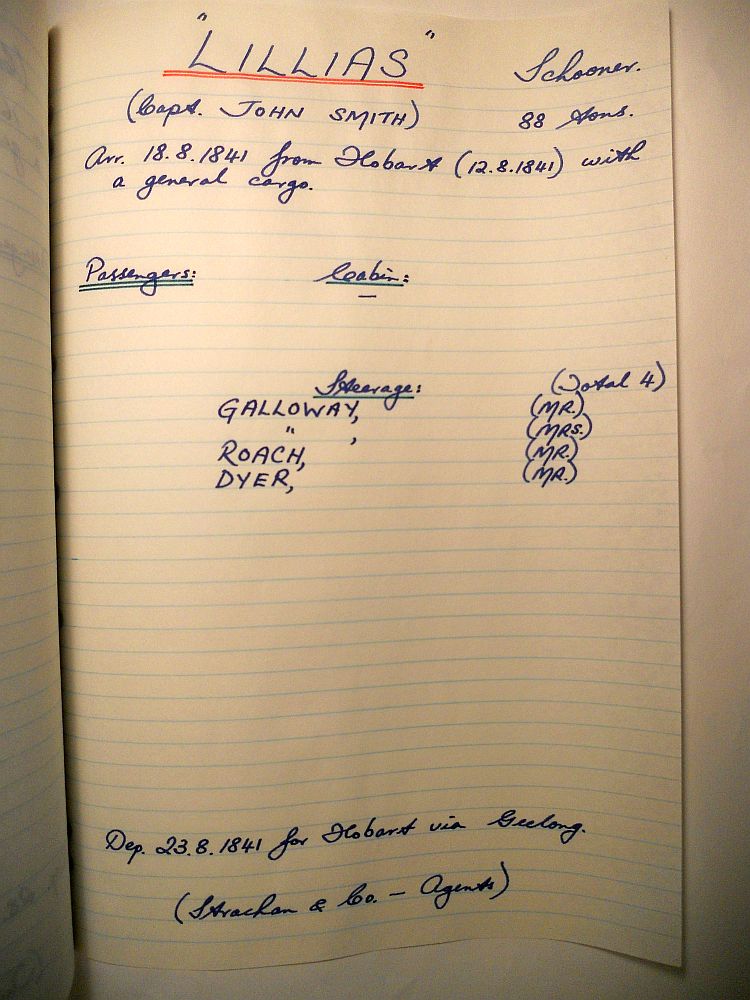 "LILLIAS" Schooner.
(Capt. JOHN SMITH) 88 tons.
Arr. 18.8.1841 from Hobart (12.8.1841) with
a general cargo.
Passengers: Cabin:
—
Steerage: (Total 4)
GALLOWAY, (MR.)
" , (MRS.)
ROACH, (MR.)
DYER, (MR.)
Dep. 23.8.1841 for Hobart via Geelong.
(Strachan & Co. - Agents)